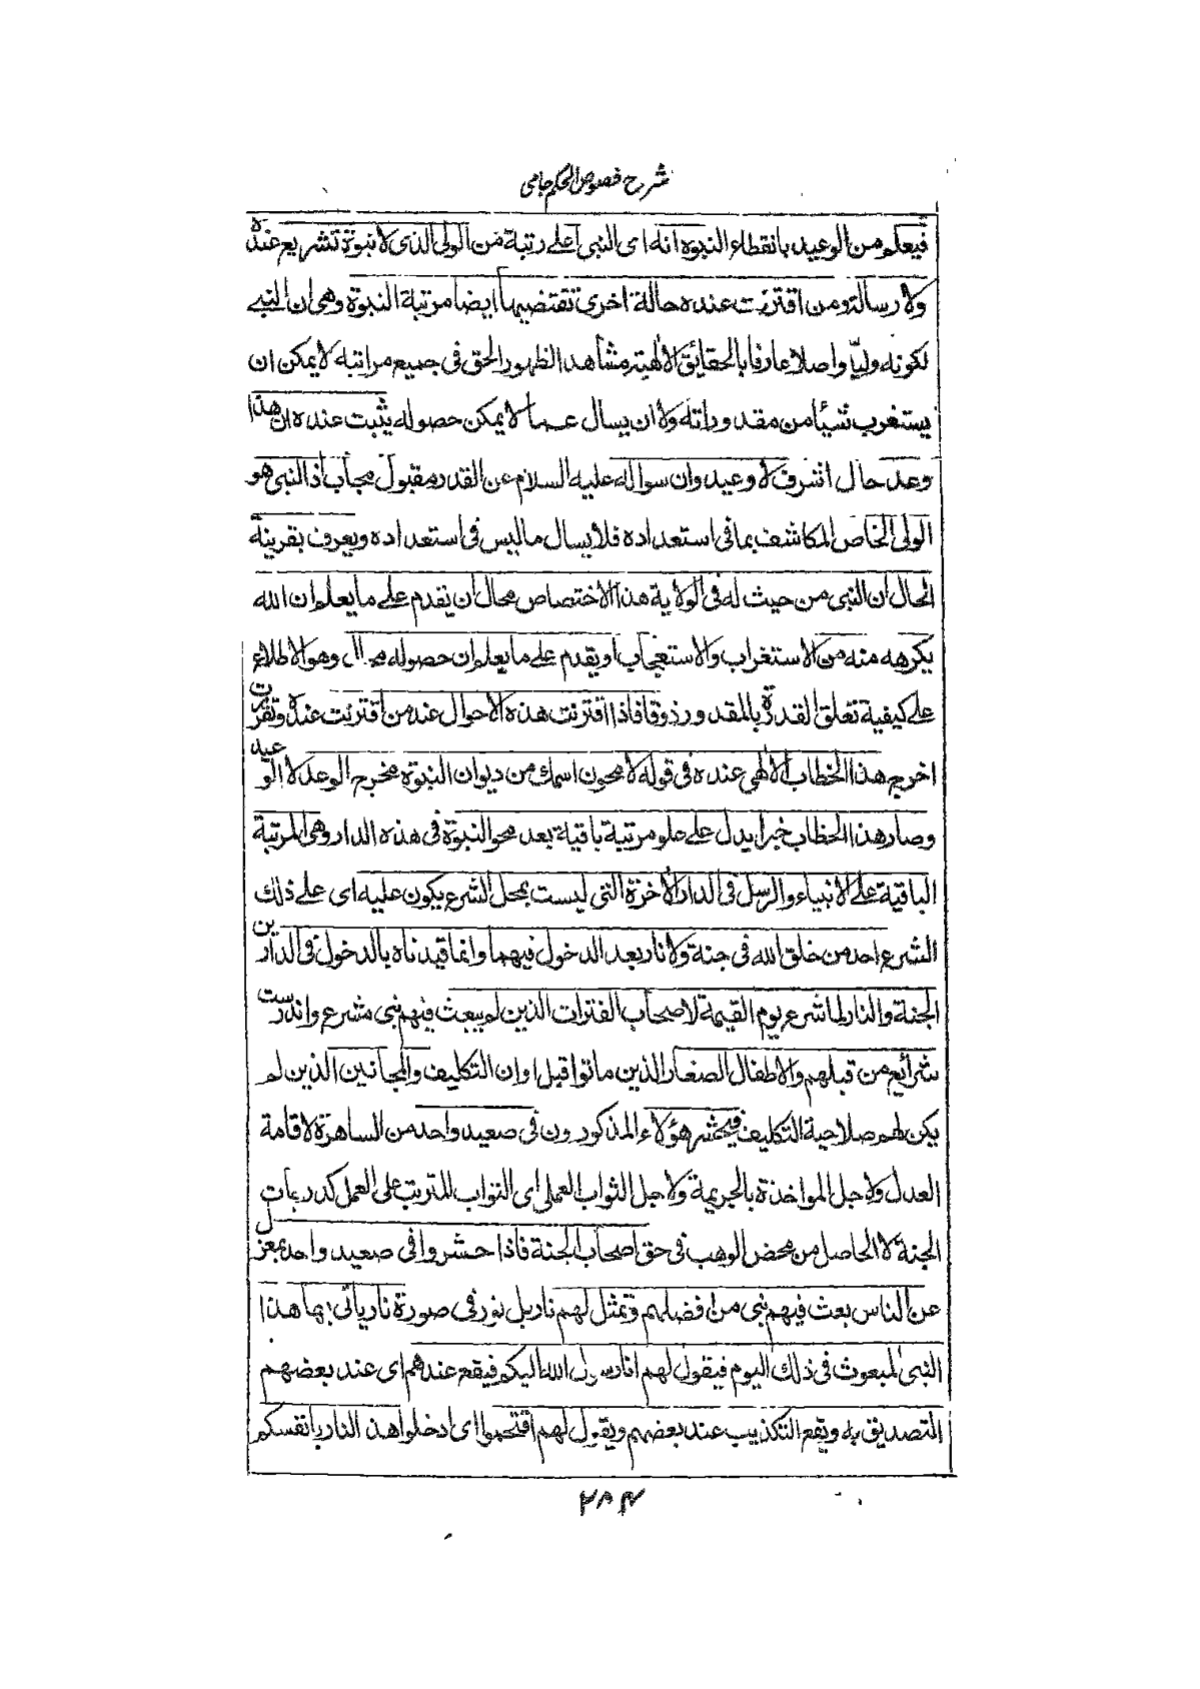 شرح فصوص الحكم جامى
فيعلم من الوعيد بانقطاع النبوة انه اى النبى اعلى رتبة من الولى الذى لا نبوة تشريع عنده
ولا رسالة ومن اقترنت عنده حالة اخرى تقتضيها ايضا مرتبة النبوة وهى ان النبى
لكونه وليّا واصلا عارفا بالحقائق الالهية مشاهد الظهور الحق فى جميع مراتبه لا يمكن ان
يستغرب شيئا من مقدوراته ولا ان يسال عما لا يمكن حصوله يثبت عنده ان هذا
وعد حال اشرف لا وعيد وان سواله عليه السلام عن القدر مقبول مجاب اذ النبى هو
الولى الخاص المكاشف بما فى استعداده فلا يسال ما ليس فى استعداده ويعرف بقرينة
الحال ان النبى من حيث له فى الولاية هذا الاختصاص محال ان يقدم على ما يعلم ان الله
يكرهه منه من الاستغراب والاستعجاب او يقدم على ما يعلم ان حصوله محال وهو الاطلاع
على كيفية تعلق القدرة بالمقدور ذوقا فاذا اقترنت هذه الاحوال عند من اقترنت عنده وتقررت
اخرج هذا الخطاب الالهى عنده فى قوله لا محون اسمك من ديوان النبوة مخرج الوعد لا الوعيد
وصار هذا الخطاب خبرا يدل على علو مرتبة باقية بعد محو النبوة فى هذه الدار وهى المرتبة
الباقية على الانبياء والرسل فى الدار الاخرة التى ليست بمحل لشرع يكون عليه اى على ذلك
الشرع احد من خلق الله فى جنة ولا نار بعد الدخول فيهما وانما قيدناه بالدخول فى الدارين
الجنة والنار لما شرع يوم القيمة لاصحاب الفترات الذين لم يبعث فيهم نبى مشرع واندرست
شرائع من قبلهم والاطفال الصغار الذين ماتوا قبل اوان التكليف والمجانين الذين لم
يكن لهم صلاحية التكليف فيحشر هؤلاء المذكورون فى صعيد واحد من الساهرة لاقامة
العدل ولاجل المواخذة بالجريمة ولاجل الثواب العملى اى الثواب المترتب على العمل كدرجات
الجنة لا الحاصل من محض الوهب فى حق اصحاب الجنة فاذا حشروا فى صعيد واحد بمعزل
عن الناس بعث فيهم نبى من افضلهم وتمثل لهم نار بل نور فى صورة نار ياتى بها هذا
النبى المبعوث فى ذلك اليوم فيقول لهم انا رسول الله اليكم فيقع عندهم اى عند بعضهم
التصديق به ويقع التكذيب عند بعضهم ويقول لهم اقتحموا اى ادخلوا هذه النار بانفسكم
٢٨٤